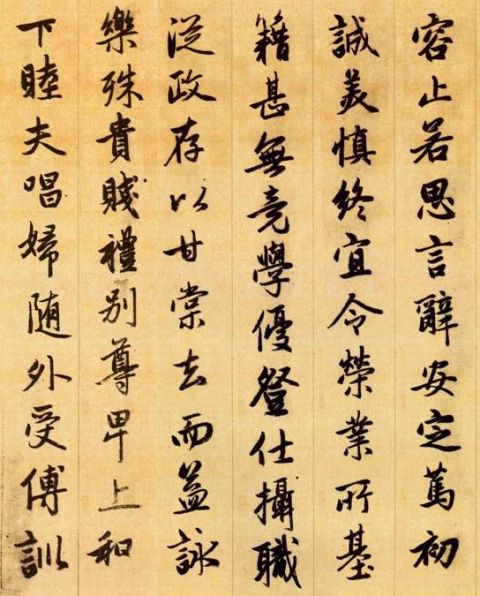 容止若思言辭安定篤初
誠美慎終宜令榮業所基
籍甚無竟學優登仕攝職
從政存以甘棠去而益詠
樂殊貴賤禮別尊卑上和
下睦夫唱婦随外受傅訓